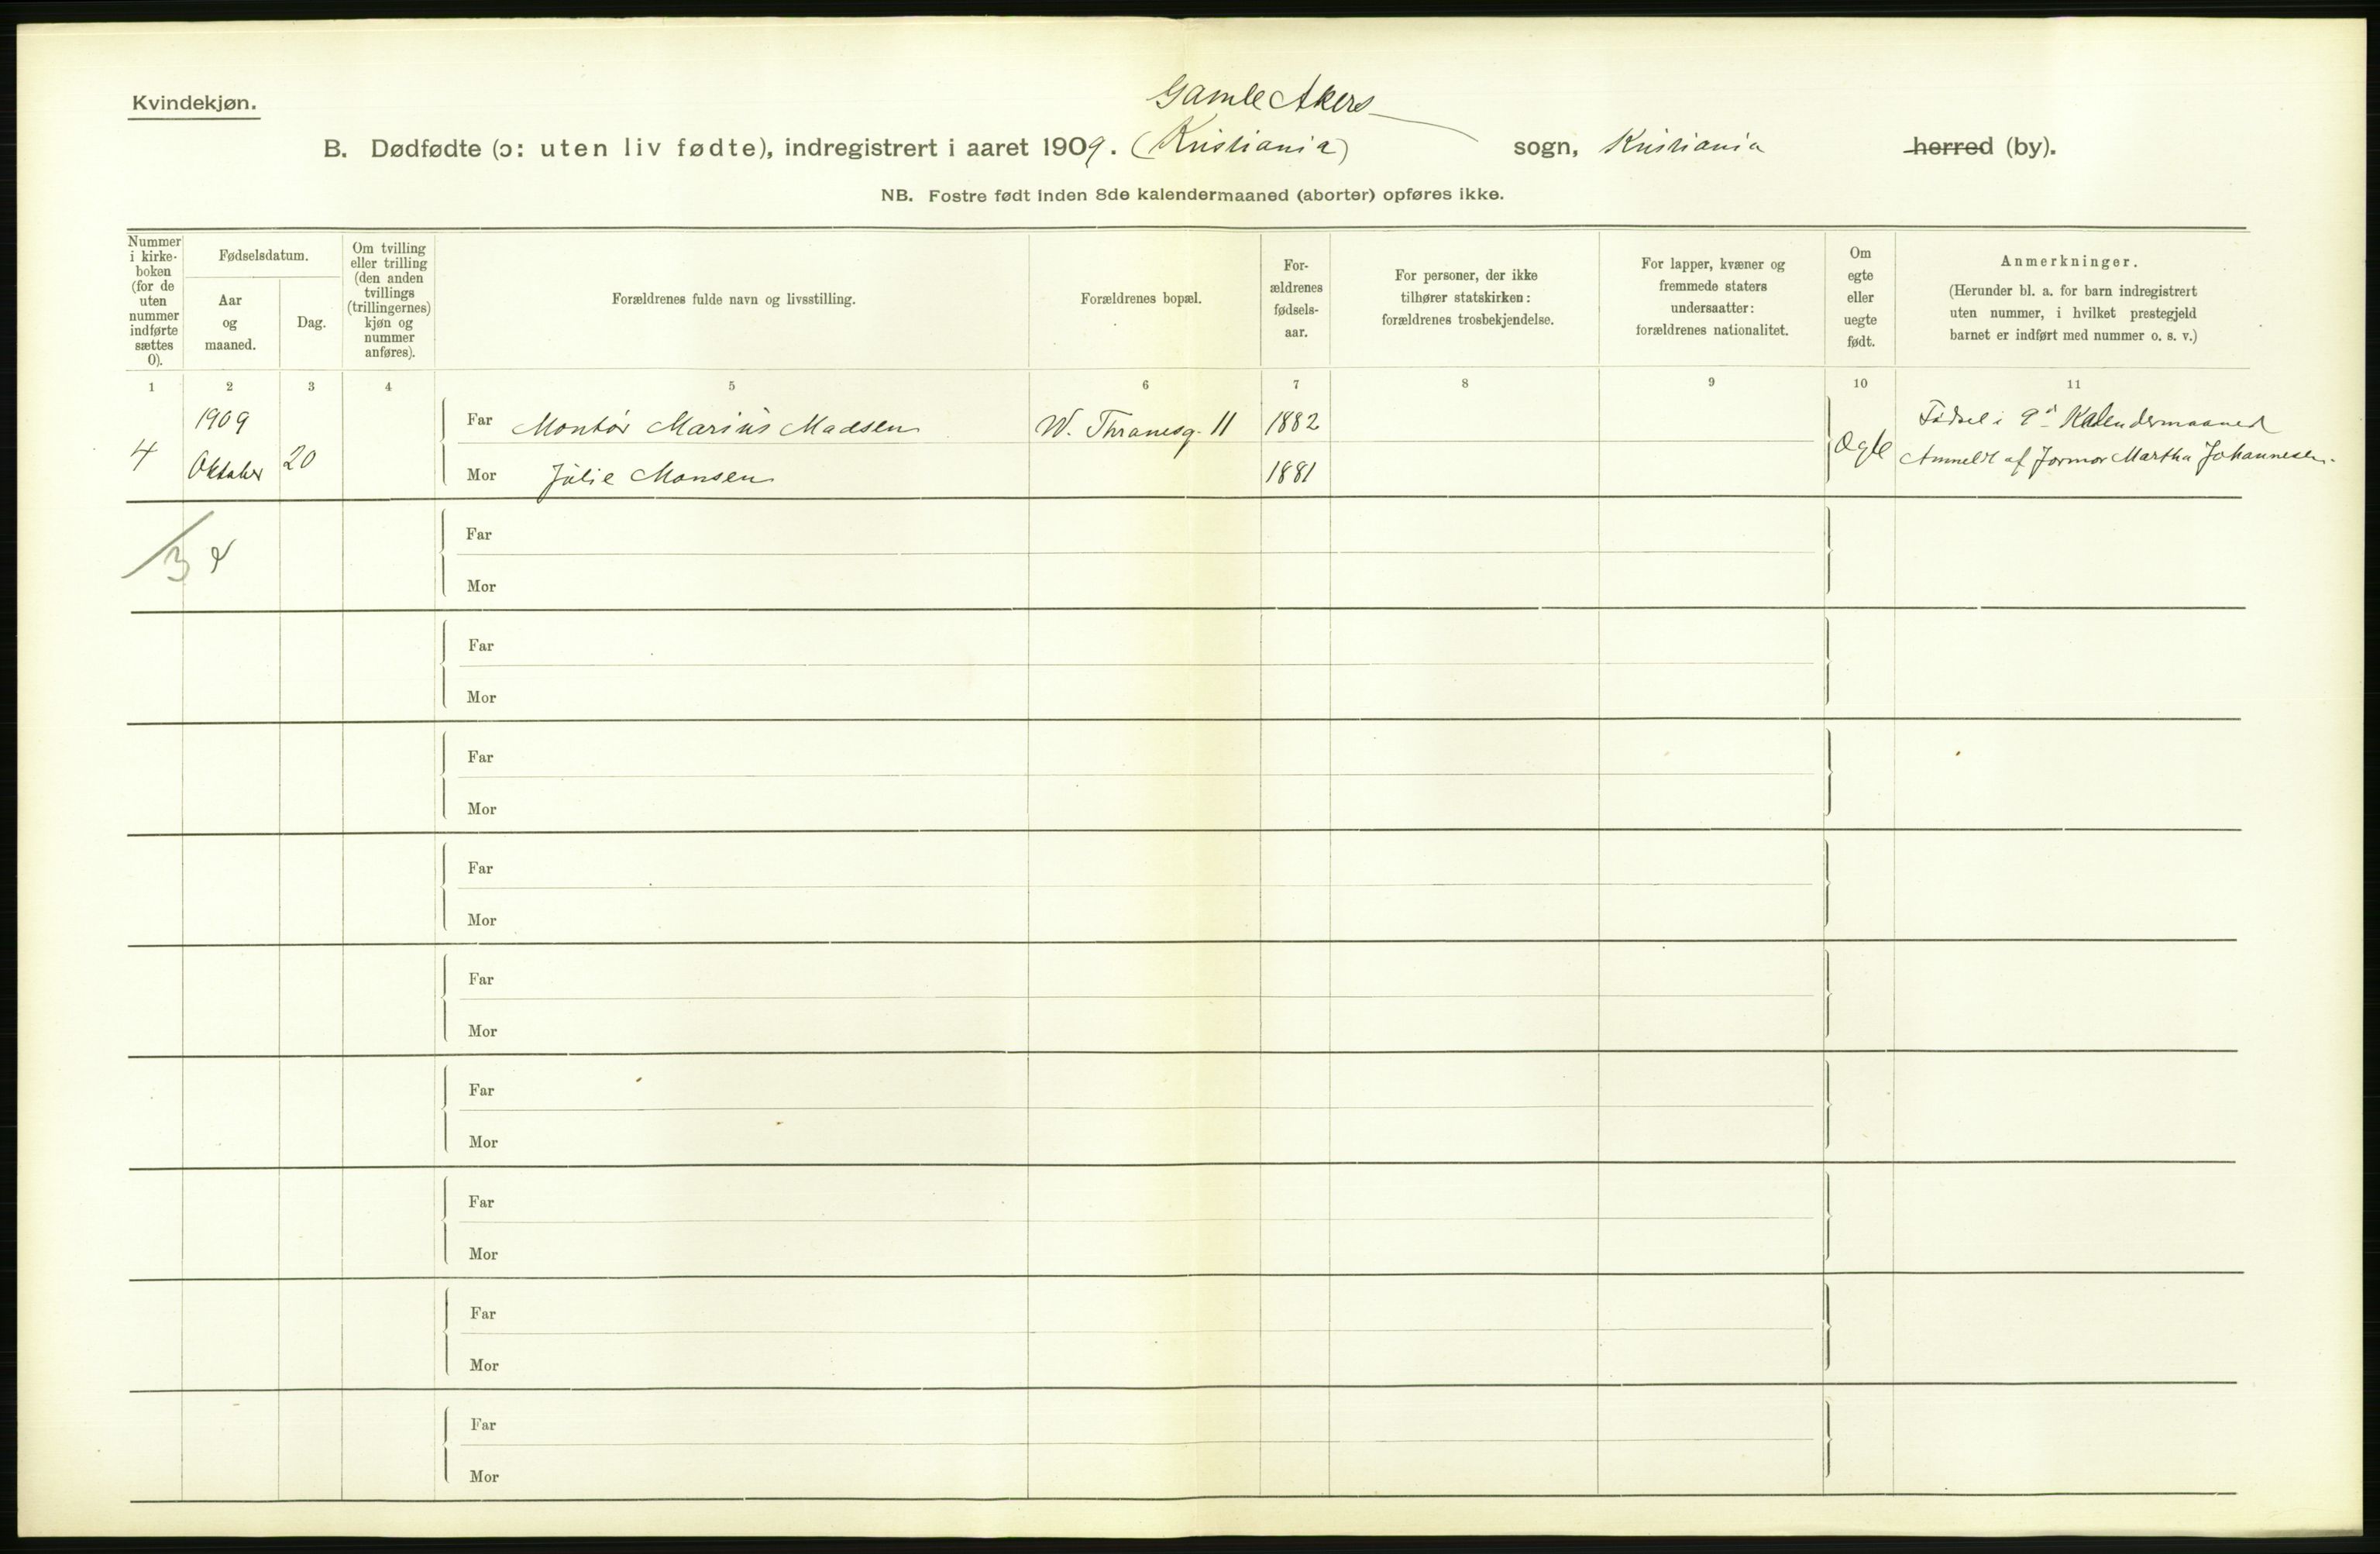 Kvindekjøn.
Gamle Akers
B. Dødfødte (ɔ: uten liv fødte), indregistrert i aaret 1909. (Kristiania) sogn, Kristiania herred (by).
NB. Fostre født inden 8de kalendermaaned (aborter) opføres ikke.
Nummer i kirke-boken (for de uten nummer indførte sættes 0).
Fødselsdatum.
Aar og maaned.
Dag.
Om tvilling eller trilling (den anden tvillings (trillingernes) kjøn og nummer anføres).
Forældrenes fulde navn og livsstilling.
Forældrenes bopæl.
For-ældrenes fødsels-aar.
For personer, der ikke tilhører statskirken: forældrenes trosbekjendelse.
For lapper, kvæner og fremmede staters undersaatter: forældrenes nationalitet.
Om egte eller uegte født.
Anmerkninger.
(Herunder bl. a. for barn indregistrert uten nummer, i hvilket prestegjeld barnet er indført med nummer o. s. v.)
1 2 3 4 5 6 7 8 9 10 11
1909 Far Montør Marius Madsen W. Thranesg. 11 1882 Fødsel i 9d Kalendermaaned
4 Oktober 20 Ægte Anmeldt af Jormor Martha Johannesen.
Mor Julie Monsen 1881
Far
Mor
Far
Mor
Far
Mor
Far
Mor
Far
Mor
Far
Mor
Far
Mor
Far
Mor
Far
Mor